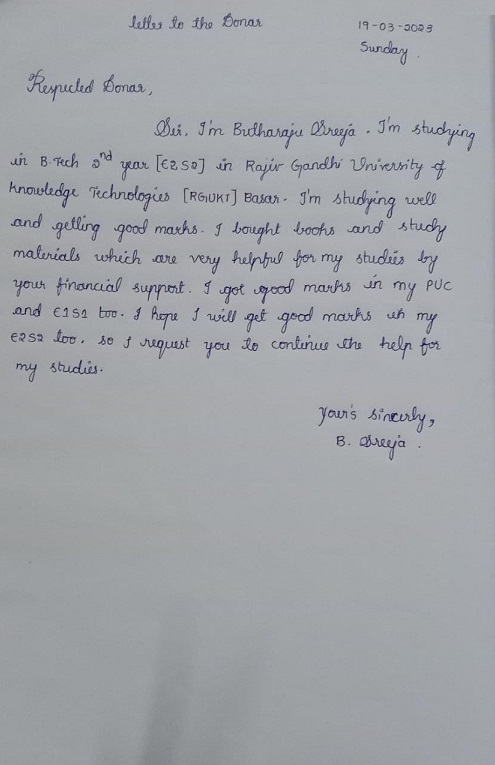 letter to the Donar
19-03-2023
Sunday.
Respected Donar,
Sir, I'm Butharaju Sreeja. I'm studying
in B.Tech 2nd year [E2S2] in Rajiv Gandhi University of
Knowledge Technologies [RGUKT] Basar. I'm studying well
and getting good marks. I bought books and study
materials which are very helpful for my studies by
your financial support. I got good marks in my PUC
and E1S1 too. I hope I will get good marks in my
E2S2 too. so I request you to continue the help for
my studies.
Your's sincerly,
B. Sreeja.